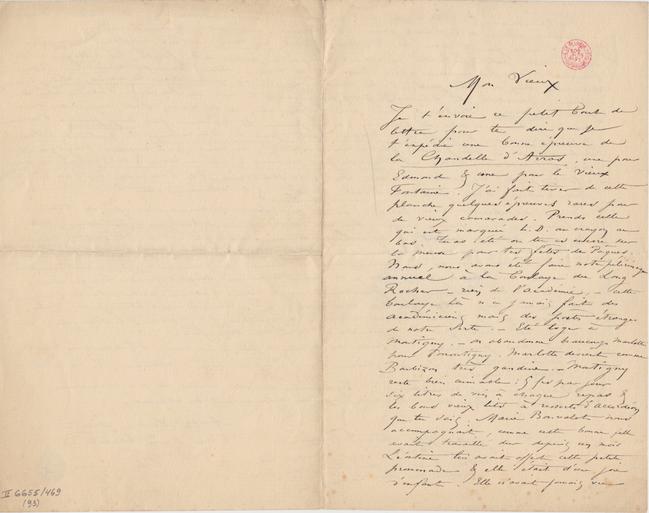 Mon Vieux
Je t'envoie ce petit bout de
lettre pour te dire que je
t'expédie une bonne épreuve de
la Chandelle d'Arras, une pour
Edmond & une pour le Vieux
Fontaine. J'ai fait tirer de cette
planche quelques épreuves rares pour
de vieux camarades. Prends celle
qui est marquée L.D. au crayon au
bas. Tu as été ou tu es encore sur
la meuse pour tes fêtes de Pâques.
Nous, nous avons été faire notre pélerinage
annuel à la du Long
Rocher – rien de l'académie. – Cette
là n'a jamais fait des
académiciens mais des étranges
de notre sorte. – Été loger à
Montigny. – on abandonne beaucoup Marlotte
pour Montigny. Marlotte devient comme
Barbizon très gandine. – Montigny
reste bien aimable: 5 frs par jour
six litres de vin à chaque repas &
les bons vieux lits à ressorts d'accordéon
que tu sais. Marie nous
accompagnait, comme cette bonne fille
avait travaillé dur depuis un mois
Léontine lui avait offert cette petite
promenade & elle était d'une joie
d'enfant. Elle n'avait jamais vu
II 6655/469
(93)